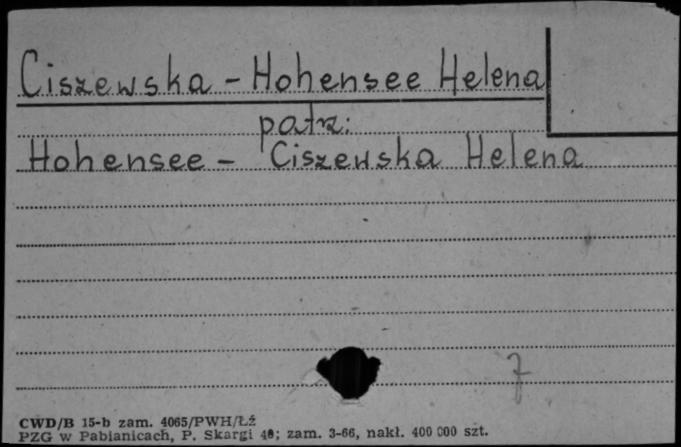 Ciszewska - Hohensee Helena
patrz:
Hohensee - Ciszewska Helena
7
CWD/B 15-b zam. 4065/PWH/Łź
PZG w Pabianicach, P. Skargi 40; zam. 3-66, nakł. 400 000 szt.